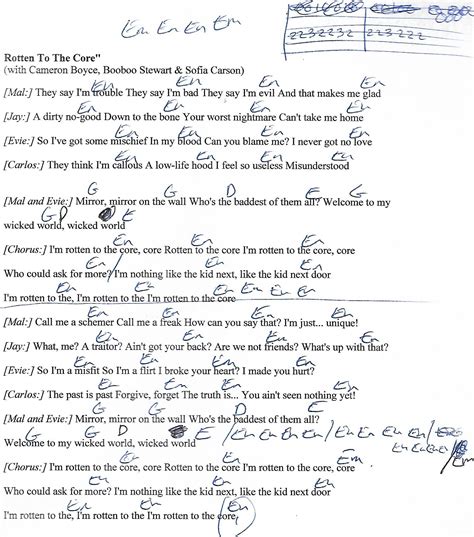 Em En En Em
2232232 223222
Rotten To The Core"
(with Cameron Boyce, Booboo Stewart & Sofia Carson)
En En En En
[Mal:] They say I'm trouble They say I'm bad They say I'm evil And that makes me glad
En En En En
[Jay:] A dirty no-good Down to the bone Your worst nightmare Can't take me home
En En En En
[Evie:] So I've got some mischief In my blood Can you blame me? I never got no love
En En En En
[Carlos:] They think I'm callous A low-life hood I feel so useless Misunderstood
G G D E G
[Mal and Evie:] Mirror, mirror on the wall Who's the baddest of them all? Welcome to my
G D E
wicked world, wicked world
En En En
[Chorus:] I'm rotten to the core, core Rotten to the core I'm rotten to the core, core
En / En En
Who could ask for more? I'm nothing like the kid next, like the kid next door
En En En Em En En
I'm rotten to the, I'm rotten to the I'm rotten to the core
En En En En
[Mal:] Call me a schemer Call me a freak How can you say that? I'm just... unique!
En En En En
[Jay:] What, me? A traitor? Ain't got your back? Are we not friends? What's up with that?
En En En En
[Evie:] So I'm a misfit So I'm a flirt I broke your heart? I made you hurt?
En En En En
[Carlos:] The past is past Forgive, forget The truth is... You ain't seen nothing yet!
G G D E
[Mal and Evie:] Mirror, mirror on the wall Who's the baddest of them all?
G G D E / En En En En / En En En En /
Welcome to my wicked world, wicked world
En En En Em
[Chorus:] I'm rotten to the core, core Rotten to the core I'm rotten to the core, core
En En En
Who could ask for more? I'm nothing like the kid next, like the kid next door
En En En
I'm rotten to the, I'm rotten to the I'm rotten to the core,